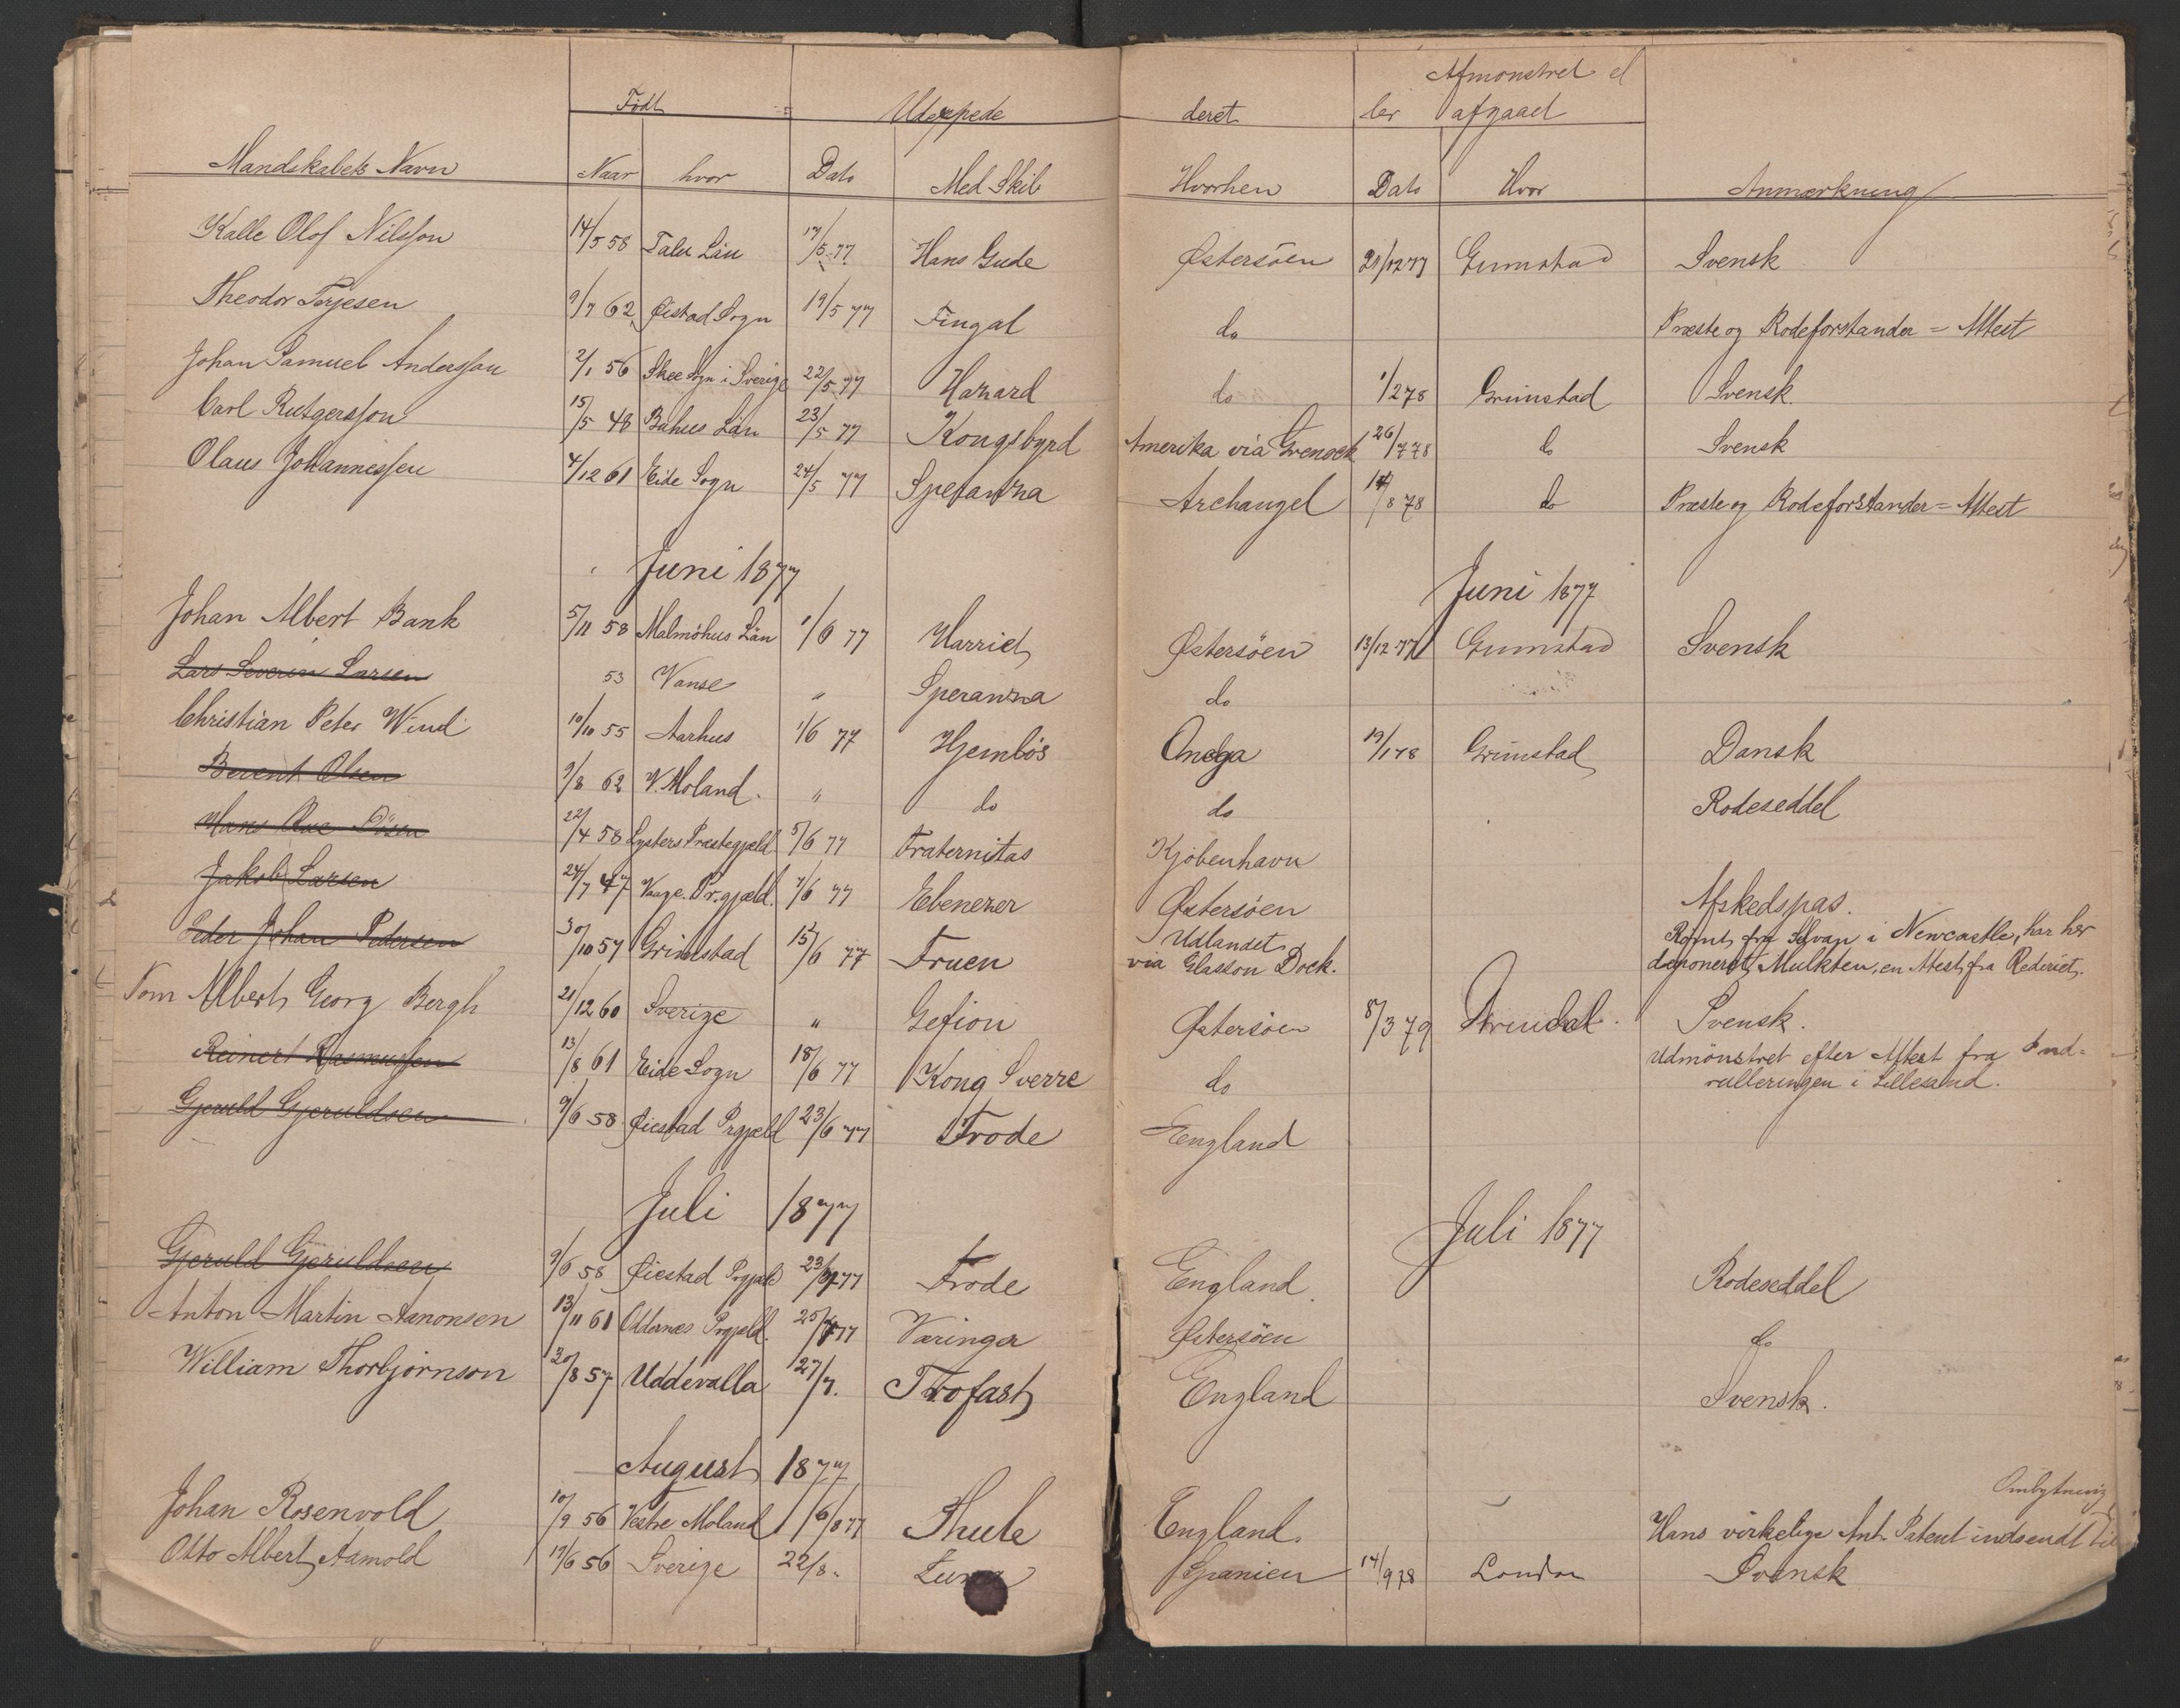 Født Udexpede deret Afmonstret el
ler afgaaet
Mandskabets Navn Naar hvor Dato Med Skib Hvorhen Dato Hvor Anmærkning
Kalle Olof Nilsson 14/5 58 Län 17/5 77 Hans Gude Østersöen 21/12 77 Grimstad Svensk
Theodor Terjesen 9/7 62 Øistad Sogn 19/5 77 Fingal do Præste og Rodeforstander = Attest
Johan Samuel Andersson 2/1 56 Skee Sogn i Sverige 22/5 77 Hazard do 1/2 78 Grimstad Svensk
Carl Rutgersson 15/5 48 Bahus Län 23/5 77 Kongsbyrd Amerika via Grenock 26/7 78 do Svensk
Olaus Johannessen 4/12 61 Eide Sogn 24/5 77 Speranza Archangel 14/8 78 do Præste og Rodeforstander = Attest
Juni 1877 Juni 1877
Johan Albert Bank 5/11 58 Malmöhus Län 1/6 77 Harriet Østersöen 13/12 77 Grimstad Svensk
Lars Severin Larsen 53 Vanse " Speranza do
Christian Peter Wind 10/10 55 Aarhus 1/6 77 Hjemlös Onega 19/1 78 Grimstad Dansk
Berent Olsen 9/8 62 V. Moland " do do Rodeseddel
Hans 22/4 58 Lysters Præstegjæld 5/6 77 Fraternitas Kjöbenhavn
Jakob Larsen 24/7 47 Vaage Pr.gjæld. 7/6 77 Ebenezer Østersöen Afskedspas.
Peder Johan Pedersen 30/10 57 Grimstad 15/6 77 Fruen Udlandet Rømt fra i Newcastle, har her
via Glasson Dock. deponeret Mulkten, en Attest fra Rederiet.
Tom Albert Georg Bergh 21/12 60 Sverige " Gefion Østersöen 8/3 79 Arendal. Svensk.
Reinert Rasmussen 13/8 61 Eide Sogn 18/6 77 Kong Sverre do Udmönstret efter Attest fra Ind=
rulleringen i Lillesand.
Gjeruld Gjeruldsen 9/6 58 Øiestad Prgjæld 23/6 77 Frode England
Juli 1877 Juli 1877
Gjeruld Gjeruldsen 9/6 58 Øiestad Prgjæld 23/7 77 Frode England Rodeseddel
Anton Martin Aanonsen 13/11 61 Oddernæs Prgjæld. 25/7 77 Væringer Østersöen do
William Thorbjörnson 20/8 57 Uddevalla 27/7. Trofast England Svensk.
August 1877
Ombytning
Johan Rosenvold 10/9 56 Vestre Moland 16/8 77 Thule England Hans virkelige Ant. Patent indsendt til
Otto Albert Aamold 19/6 56 Sverige 22/8 " Spanien 14/9 78 London Svensk